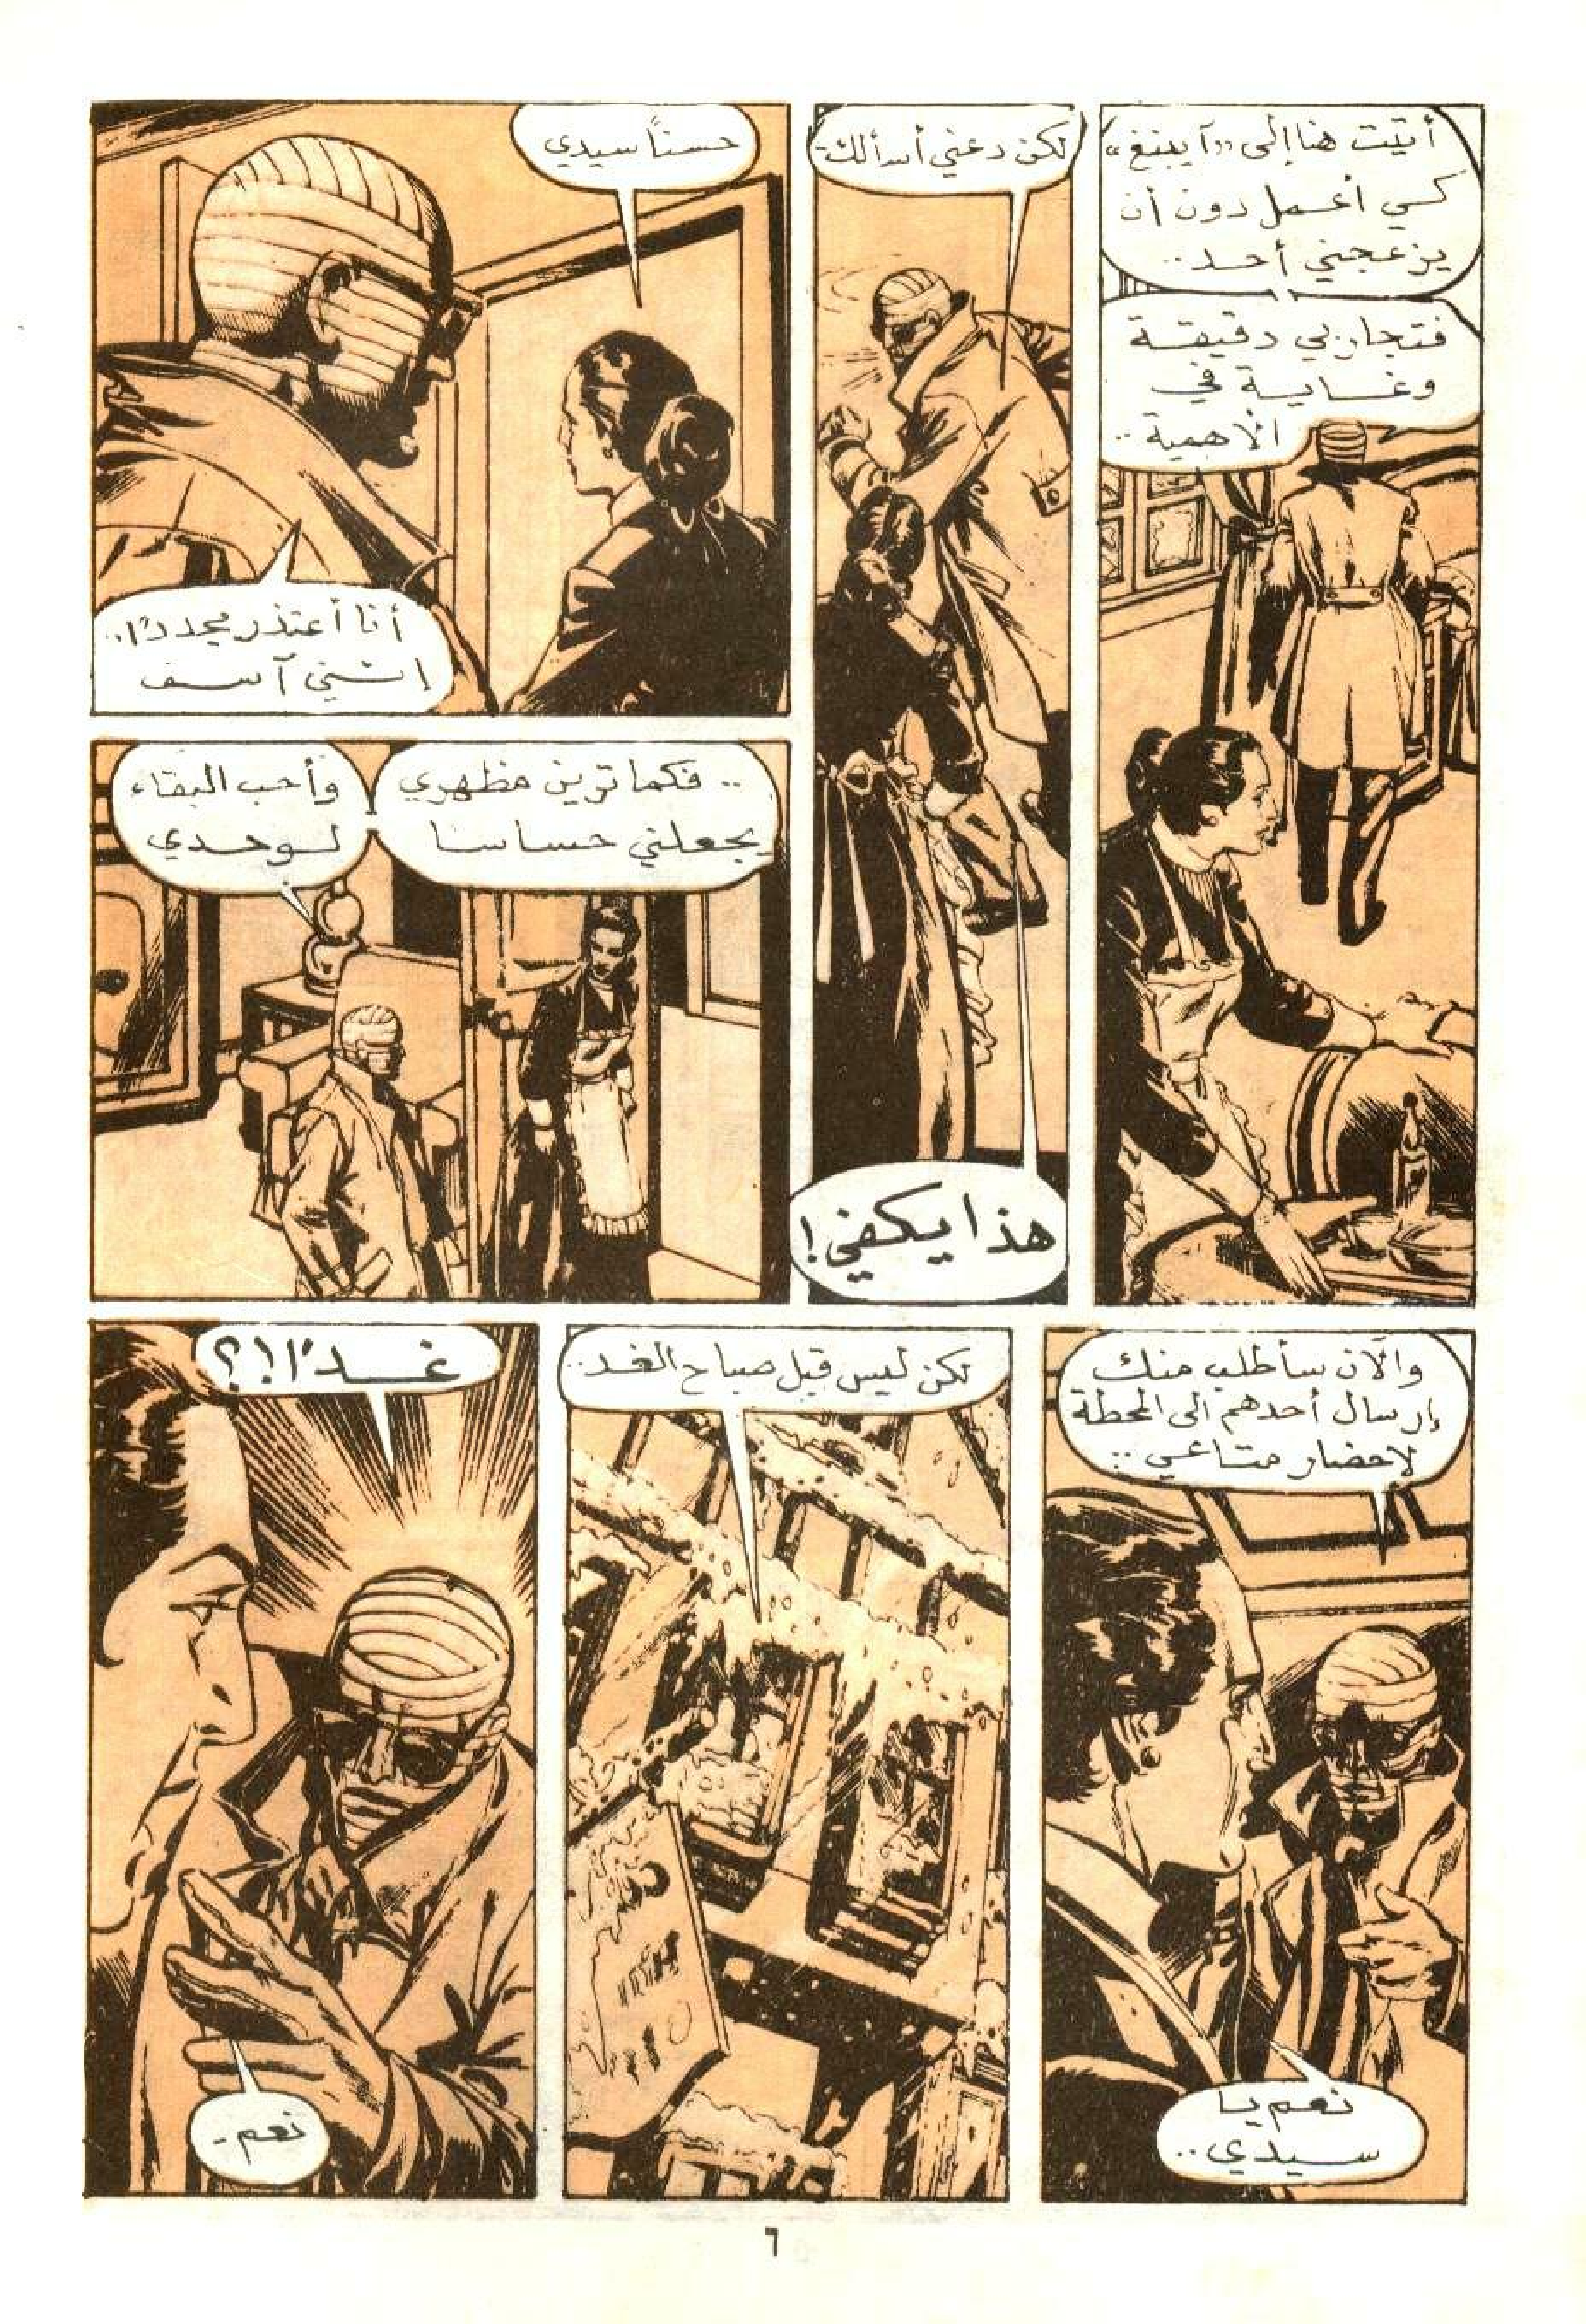 أتيت هنا إلى «آيبنغ»
كي أعمل دون أن
يزعجني أحد..
فتجاربي دقيقة
وغاية في
الأهمية..
لكن دعني أسألك
هذا يكفي!
حسناً سيدي
أنا أعتذر مجدداً..
إنني آسف
.. فكما ترين مظهري
يجعلني حساسا
وأحب البقاء
لوحدي
والآن سأطلب منك
إرسال أحدهم الى المحطة
لاحضار متاعي..
نعم يا
سيدي..
لكن ليس قبل صباح الغد..
غداً!؟
نعم -
٦